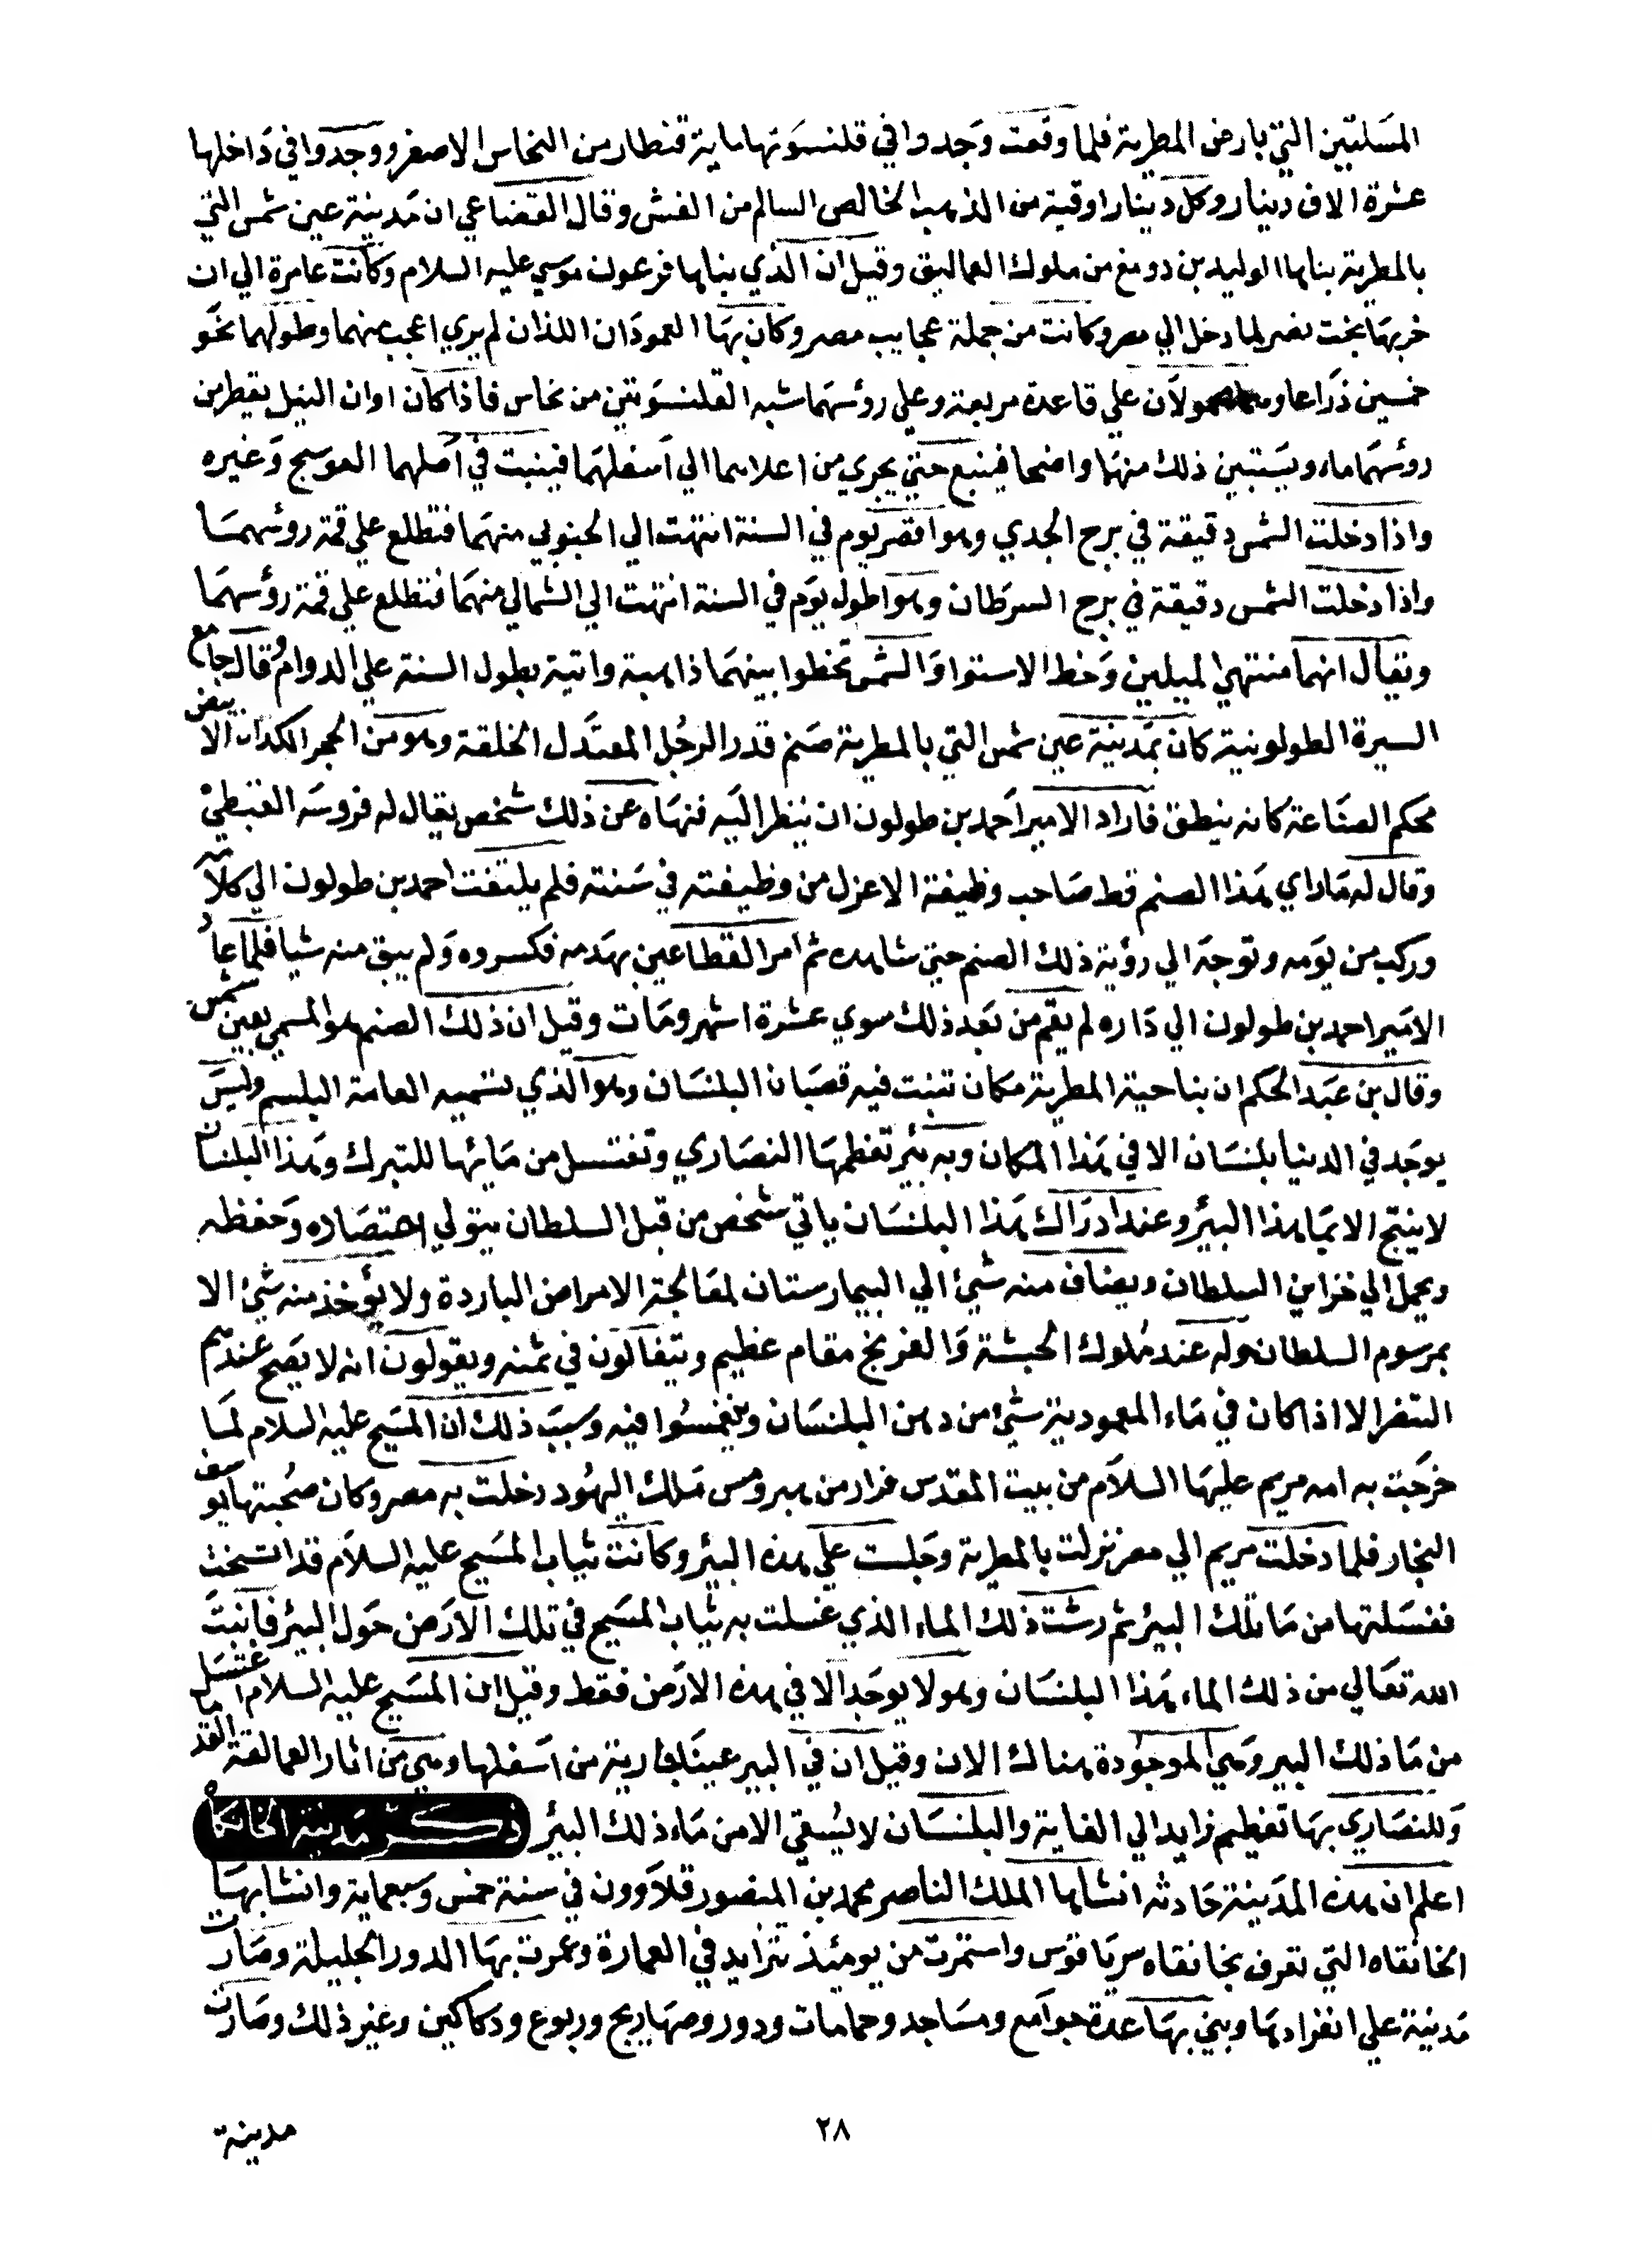 المسلتين التي بارض المطرية فلما وقعت وجدوا في قلنسوتها ماية قنطار من النحاس الاصفر ووجدوا في داخلها
عشرة الاف دينار وكل دينار اوقية من الذهب الخالص السالم من الغش وقال القضاعي ان مدينة عين شمس التي
بالمطرية بناها الوليد بن دومغ من ملوك العماليق وقيل ان الذي بناها فرعون موسي عليه السلام وكانت عامرة الي ان
خربها بخت نصر لما دخل الي مصر وكانت من جملة عجايب مصر وكان بها العمودان اللذان لم يري اعجب منهما وطولهما نحو
خمسين ذراعا وهما محمولان علي قاعدة مربعة وعلي رؤسهما شبه القلنسوتين من نحاس فاذا كان اوان النيل يقطر من
روسهما ماء ويستبين ذلك منهما واضحا فينبع حتي يجري من اعلاهما الي اسفلهما فينبت في اصلهما العوسج وغيره
واذا دخلت الشمس دقيقة في برج الجدي وهو اقصر يوم في السنة انتهت الي الجنوبي منهما فتطلع علي قمة روسهما
واذا دخلت الشمس دقيقة في برج السرطان وهو اطول يوم في السنة انتهت الي الشمالي منهما فتطلع علي قمة رؤسهما
ويقال انهما منتهي الميلين وخط الاستوا والشمس تخطوا بينهما ذاهبة واتية بطول السنة علي الدوام وقال جامع
السيرة الطولونية كان بمدينة عين شمس التي بالمطرية صنم قدر الرجل المعتدل الخلقة وهو من الحجر الكدان الابيض
محكم الصناعة كانه ينطق فاراد الامير احمد بن طولون ان ينظر اليه فنهاه عن ذلك شخص يقال له فروسه القبطي
وقال له ما راي هذا الصنم قط صاحب وظيفة الا عزل من وظيفته في سنته فلم يلتفت احمد بن طولون الي كلامه
وركب من يومه وتوجه الي رؤية ذلك الصنم حتي شاهده ثم امر القطاعين بهدمه فكسروه ولم يبق منه شيا فلما عاد
الامير احمد بن طولون الي داره لم يقم من بعد ذلك سوي عشرة اشهر ومات وقيل ان ذلك الصنم هو المسمي بعين شمس
وقال بن عبد الحكم ان بناحية المطرية مكان تنبت فيه قصبان البلسان وهو الذي تسميه العامة البلسم وليس
يوجد في الدنيا بلنسان الا في هذا المكان وبه بئر تعظمها النصاري وتغتسل من مائها للتبرك وهذا البلنسان
لا ينتج الا بما هذا البئر وعند ادراك هذا البلنسان ياتي شخص من قبل السلطان يتولي اعتصاره وحفظه
ويحمل الي خزاين السلطان ويضاف منه شئ الي البيمارستان لمعالجة الامراض الباردة ولا يؤخذ منه شئ الا
بمرسوم السلطان وله عند ملوك الحبشة والفرنج مقام عظيم ويتغالون في ثمنه ويقولون انه لا يصح عندهم
التنصر الا اذا كان في ماء المعمودية شئ من دهن البلنسان وينغمسوا فيه وسبب ذلك ان المسيح عليه السلام لما
خرجت به امه مريم عليها السلام من بيت المقدس فرار من هيرومس ملك اليهود دخلت به مصر وكان صحبتها يوسف
النجار فلما دخلت مريم الي مصر نزلت بالمطرية وجلست علي هذه البئر وكانت ثياب المسيح عليه السلام قد اتسخت
فغسلتها من ما تلك البير ثم رشت ذلك الماء الذي غسلت به ثياب المسيح في تلك الارض حول البير فانبت
الله تعالي من ذلك الماء هذا البلنسان وهو لا يوجد الا في هذه الارض فقط وقيل ان المسيح عليه السلام اغتسل
من ما ذلك البير وهي الموجودة هناك الان وقيل ان في البير عينا جارية من اسفلها وهي من اثار العمالقة القدما
وللنصاري بها تعظيم زايد الي الغاية والبلنسان لا يسقي الا من ماء ذلك البئر ذكر مدينة الخانكاه
اعلم ان هذه المدينة حادثه انشاها الملك الناصر محمد بن المنصور قلاوون في سنة خمس وسبعماية وانشا بها
الخانقاه التي تعرف بخانقاه سرياقوس واستمرت من يومئذ تتزايد في العمارة وعمرت بها الدور الجليلة وصارت
مدينة علي انفرادها وبني بها عدة جوامع ومساجد وحمامات ودور وصهاريج وربوع ودكاكين وغير ذلك وصارت
مدينة
٢٨